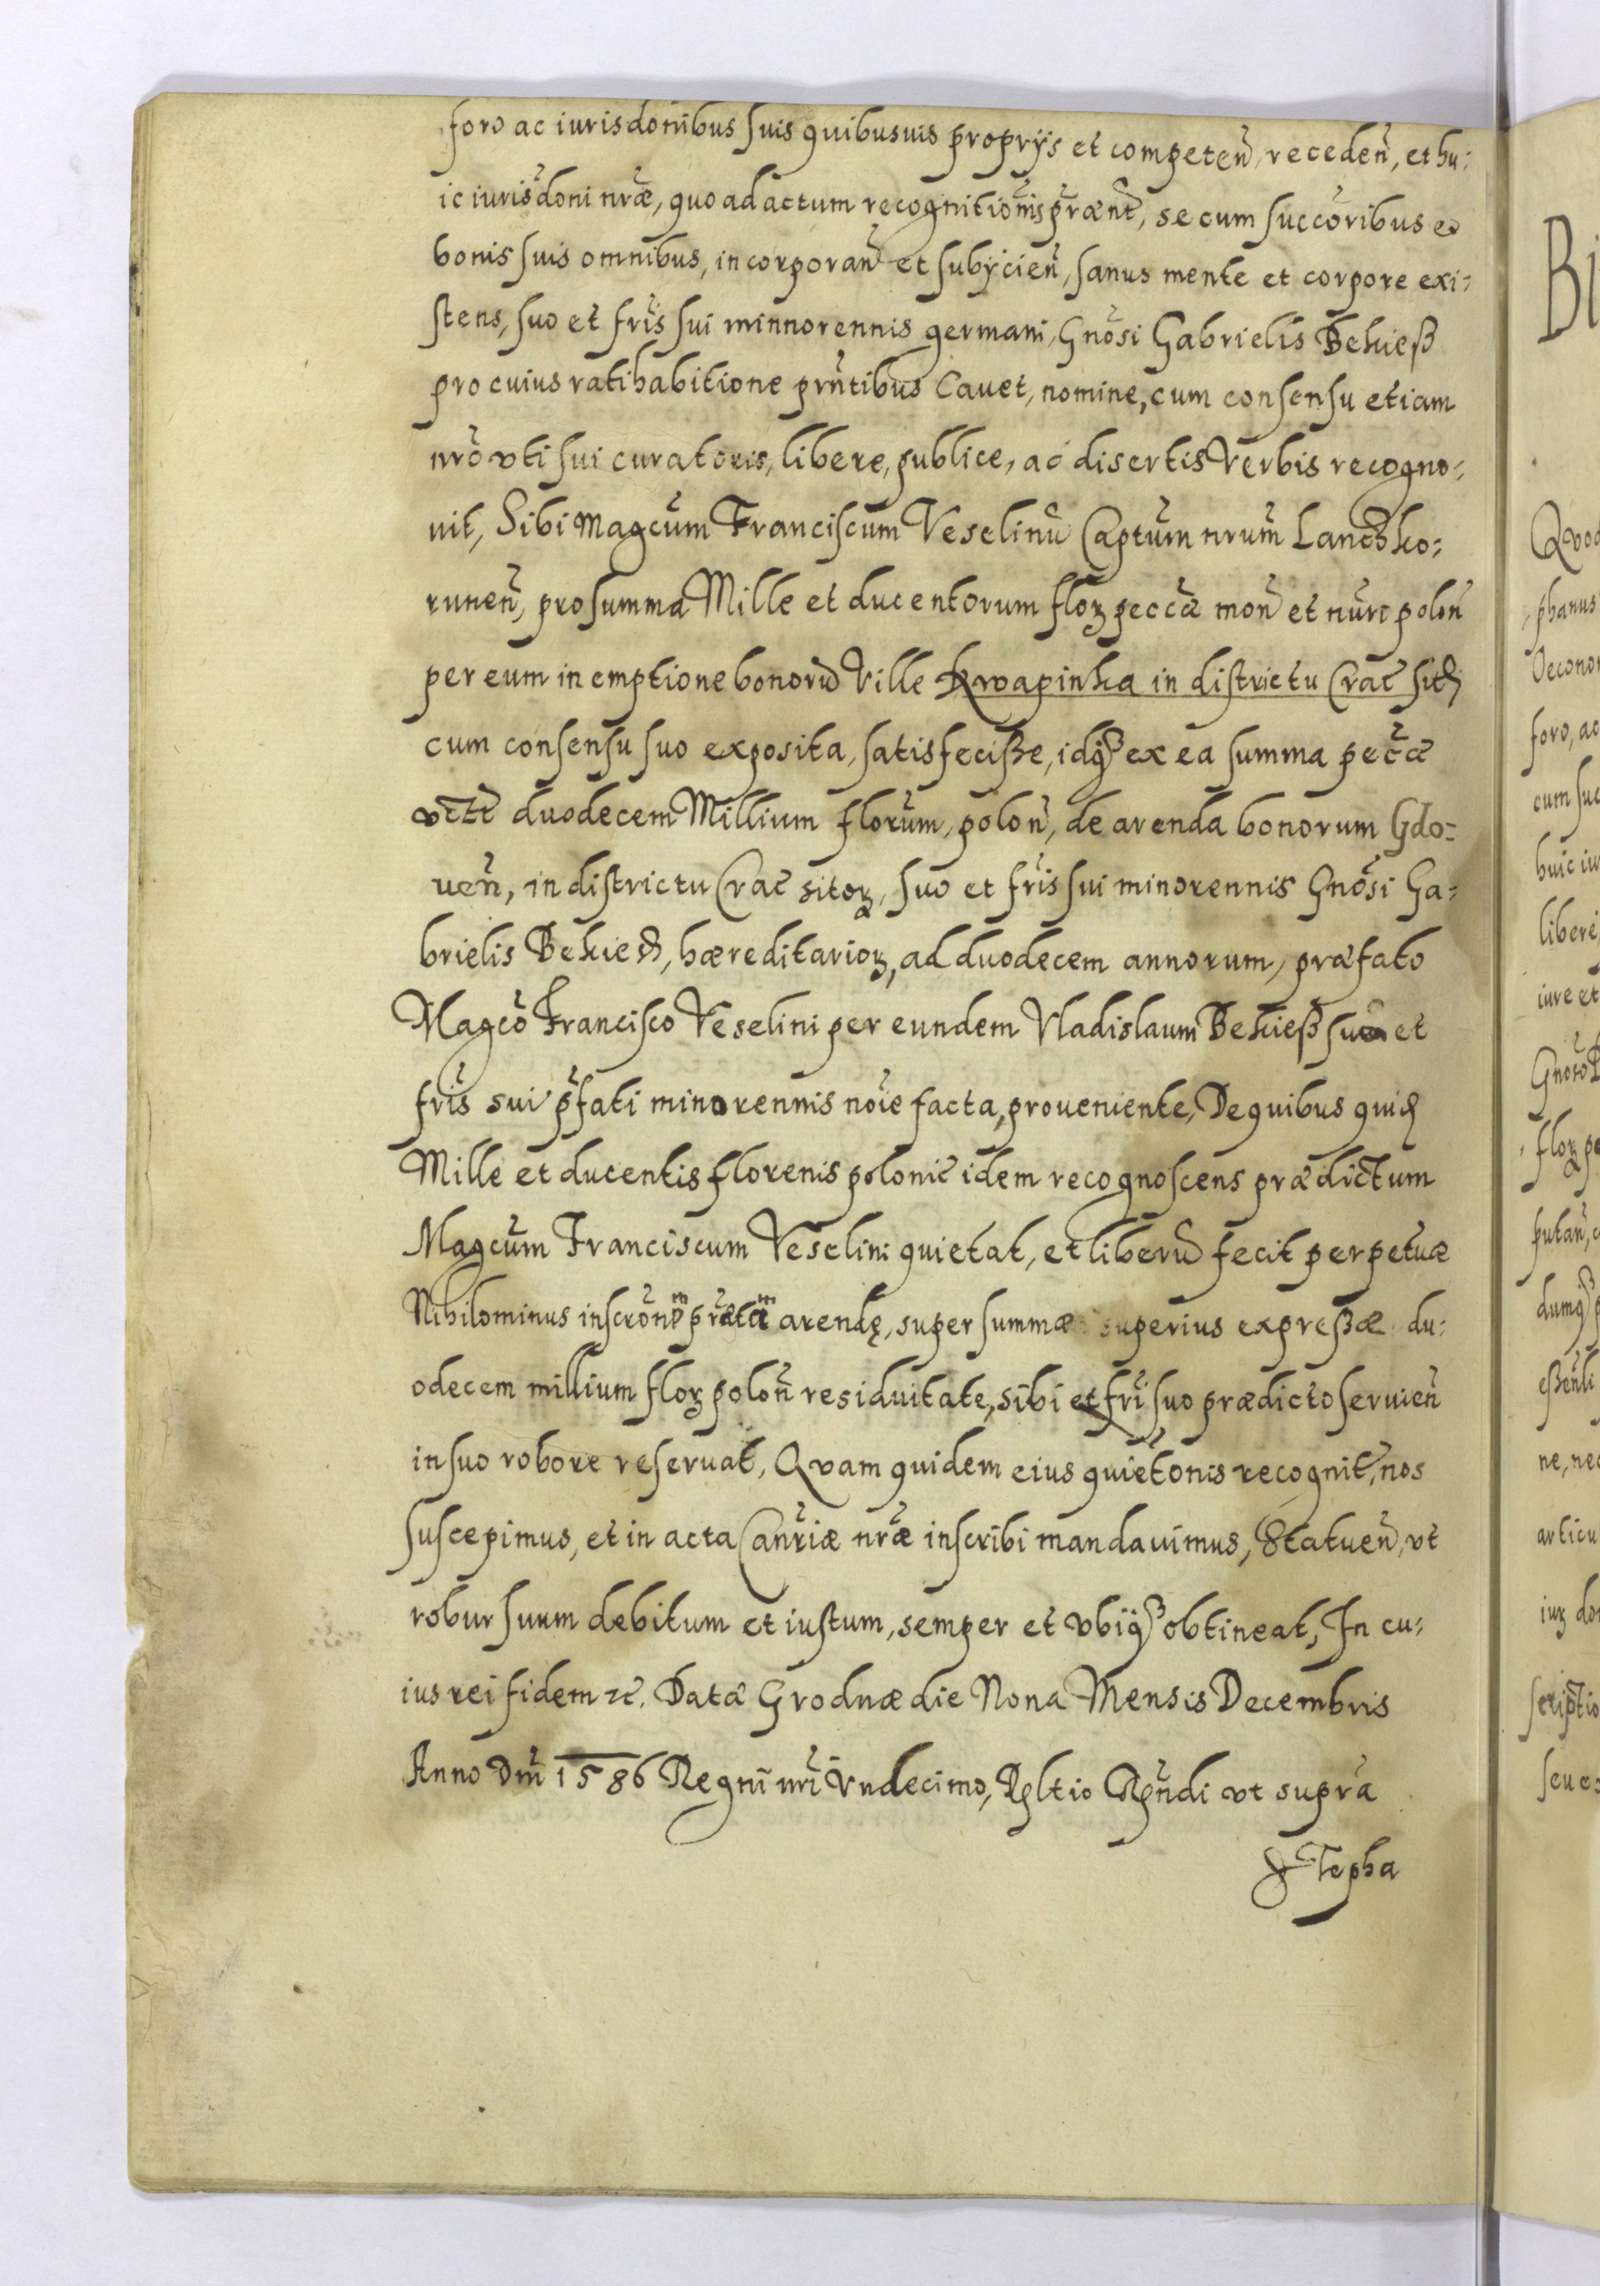 foro ac iurisdonibus suis quibusuis proprijs et competeñ, recedeñ, et hu:
ic iurisdoni nræ, quo ad actum recognitionis præñt, se cum succoribus et
bonis suis omnibus, incorporañ et subijcieñ, sanus mente et corpore exi:
stens, suo et fris sui minnorennis germani, Gnosi Gabrielis Bekieß
pro cuius ratihabitione prñtibus Cauet, nomine, cum consensu etiam
nro vti sui curatoris, libere, publice, ac disertis Verbis recogno:
uit, Sibi Magcum Franciscum Veselinū Captum nrum Lanczko:
runeñ, pro summa Mille et ducentorum floꝝ peccæ moñ et nūri poloñ
per eum in emptione bonorū Ville Kwapinka in districtu Crac̃
cum consensu suo exposita, satisfecisse, idqꝫ ex ea summa pecæ
duodecem Millium florum, poloñ, de arenda bonorum Gdo:
ueñ, in districtu Crac̃ sitoꝝ, suo et fris sui minorennis Gnosi Ga:
brielis Bekieß, hæreditarioꝝ, ad duodecem annorum, præfato
Magco Francisco Veselini per eundem Vladislaum Bekieß suo et
fris sui pfati minorennis noie facta, proueniente, De quibus
Mille et ducentis florenis polonic̃ idem recognoscens prædictum
Magcum Franciscum Veselini quietat, et liberū fecit perpetuæ
Nihilominus arendę, super summæ superius expressæ du:
odecem millium floꝝ poloñ residuitate, sibi et fri suo prædicto seruieñ
in suo robore reseruat, Quam quidem eius quietonis recognit, nos
suscepimus, et in acta Canriæ nræ inscribi mandauimus, Statueñ, vt
robur suum debitum et iustum, semper et vbiqꝫ obtineat, In cu:
ius rei fidem etc̃. Datæ Grodnæ die Nona Mensis Decembris
Anno Dñi 1586 Regni nri Vndecimo, Rltio vt supra